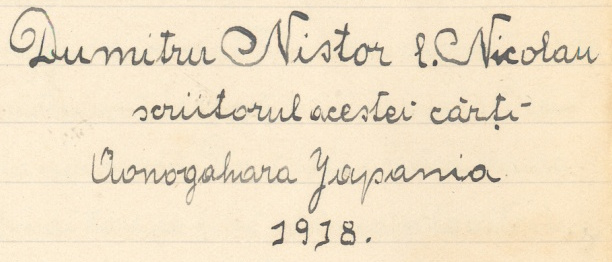 Dumitru Nistor l. Nicolau
scriitorul acestei cărți
Aonogahara Yapania
1918.